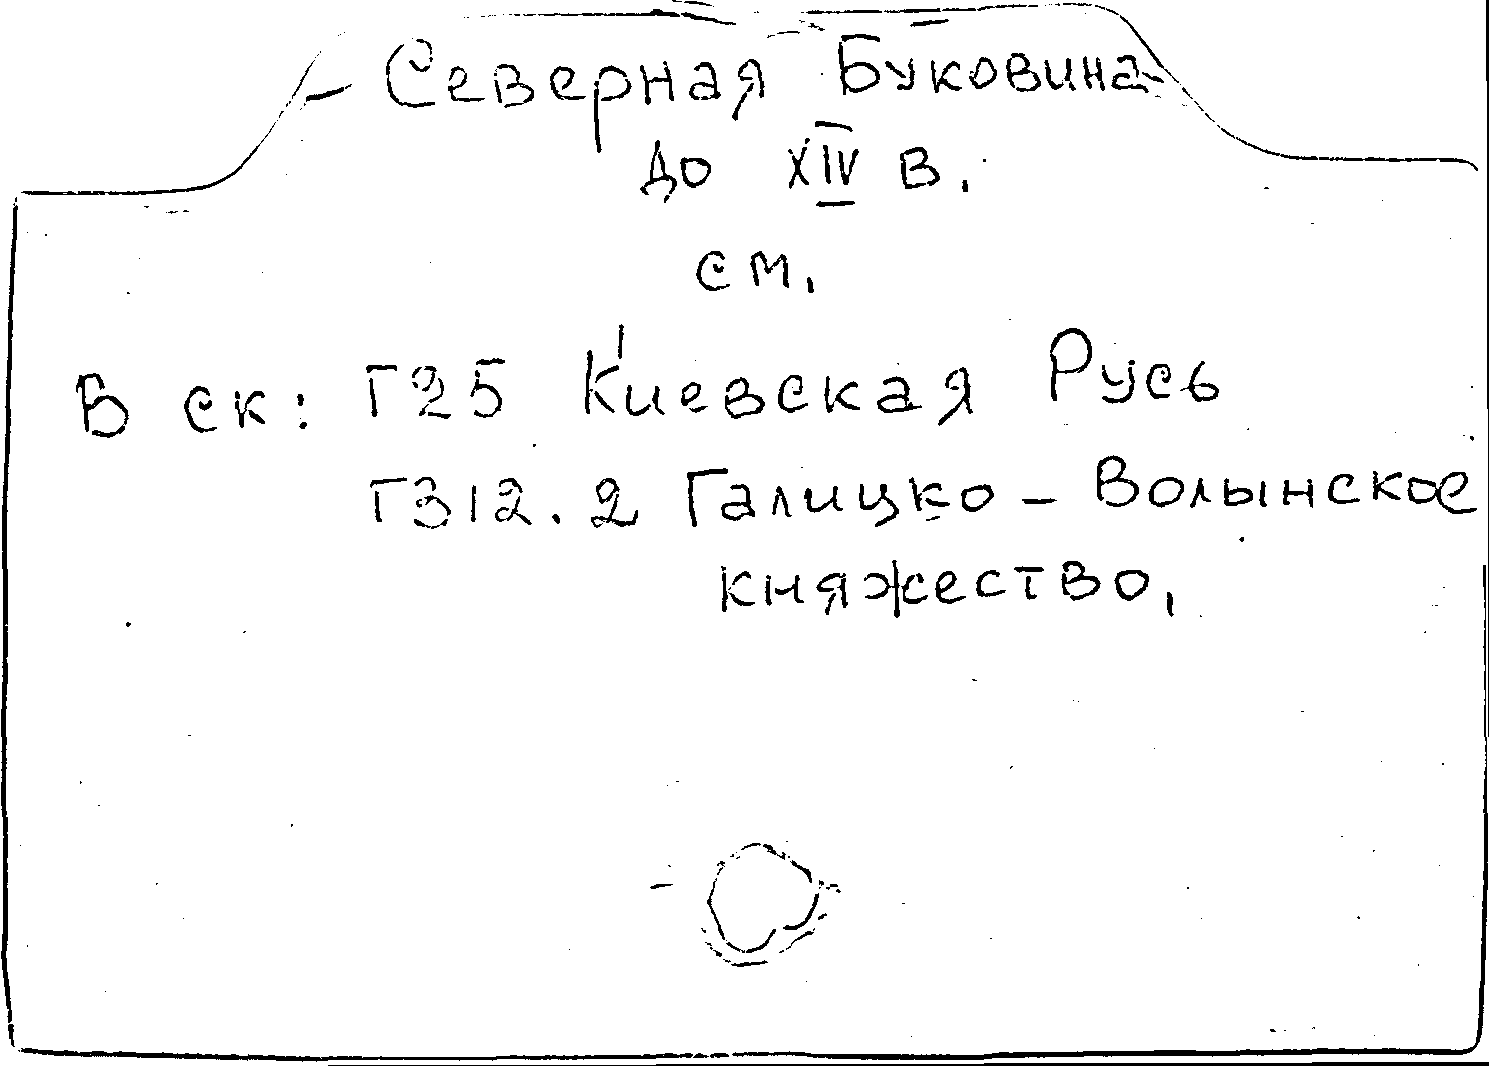 Северная Буковина
до XIV в.
см.
В ск: Г25 Киевская Русь
Г312.2 Галицко - Волынское
княжество.